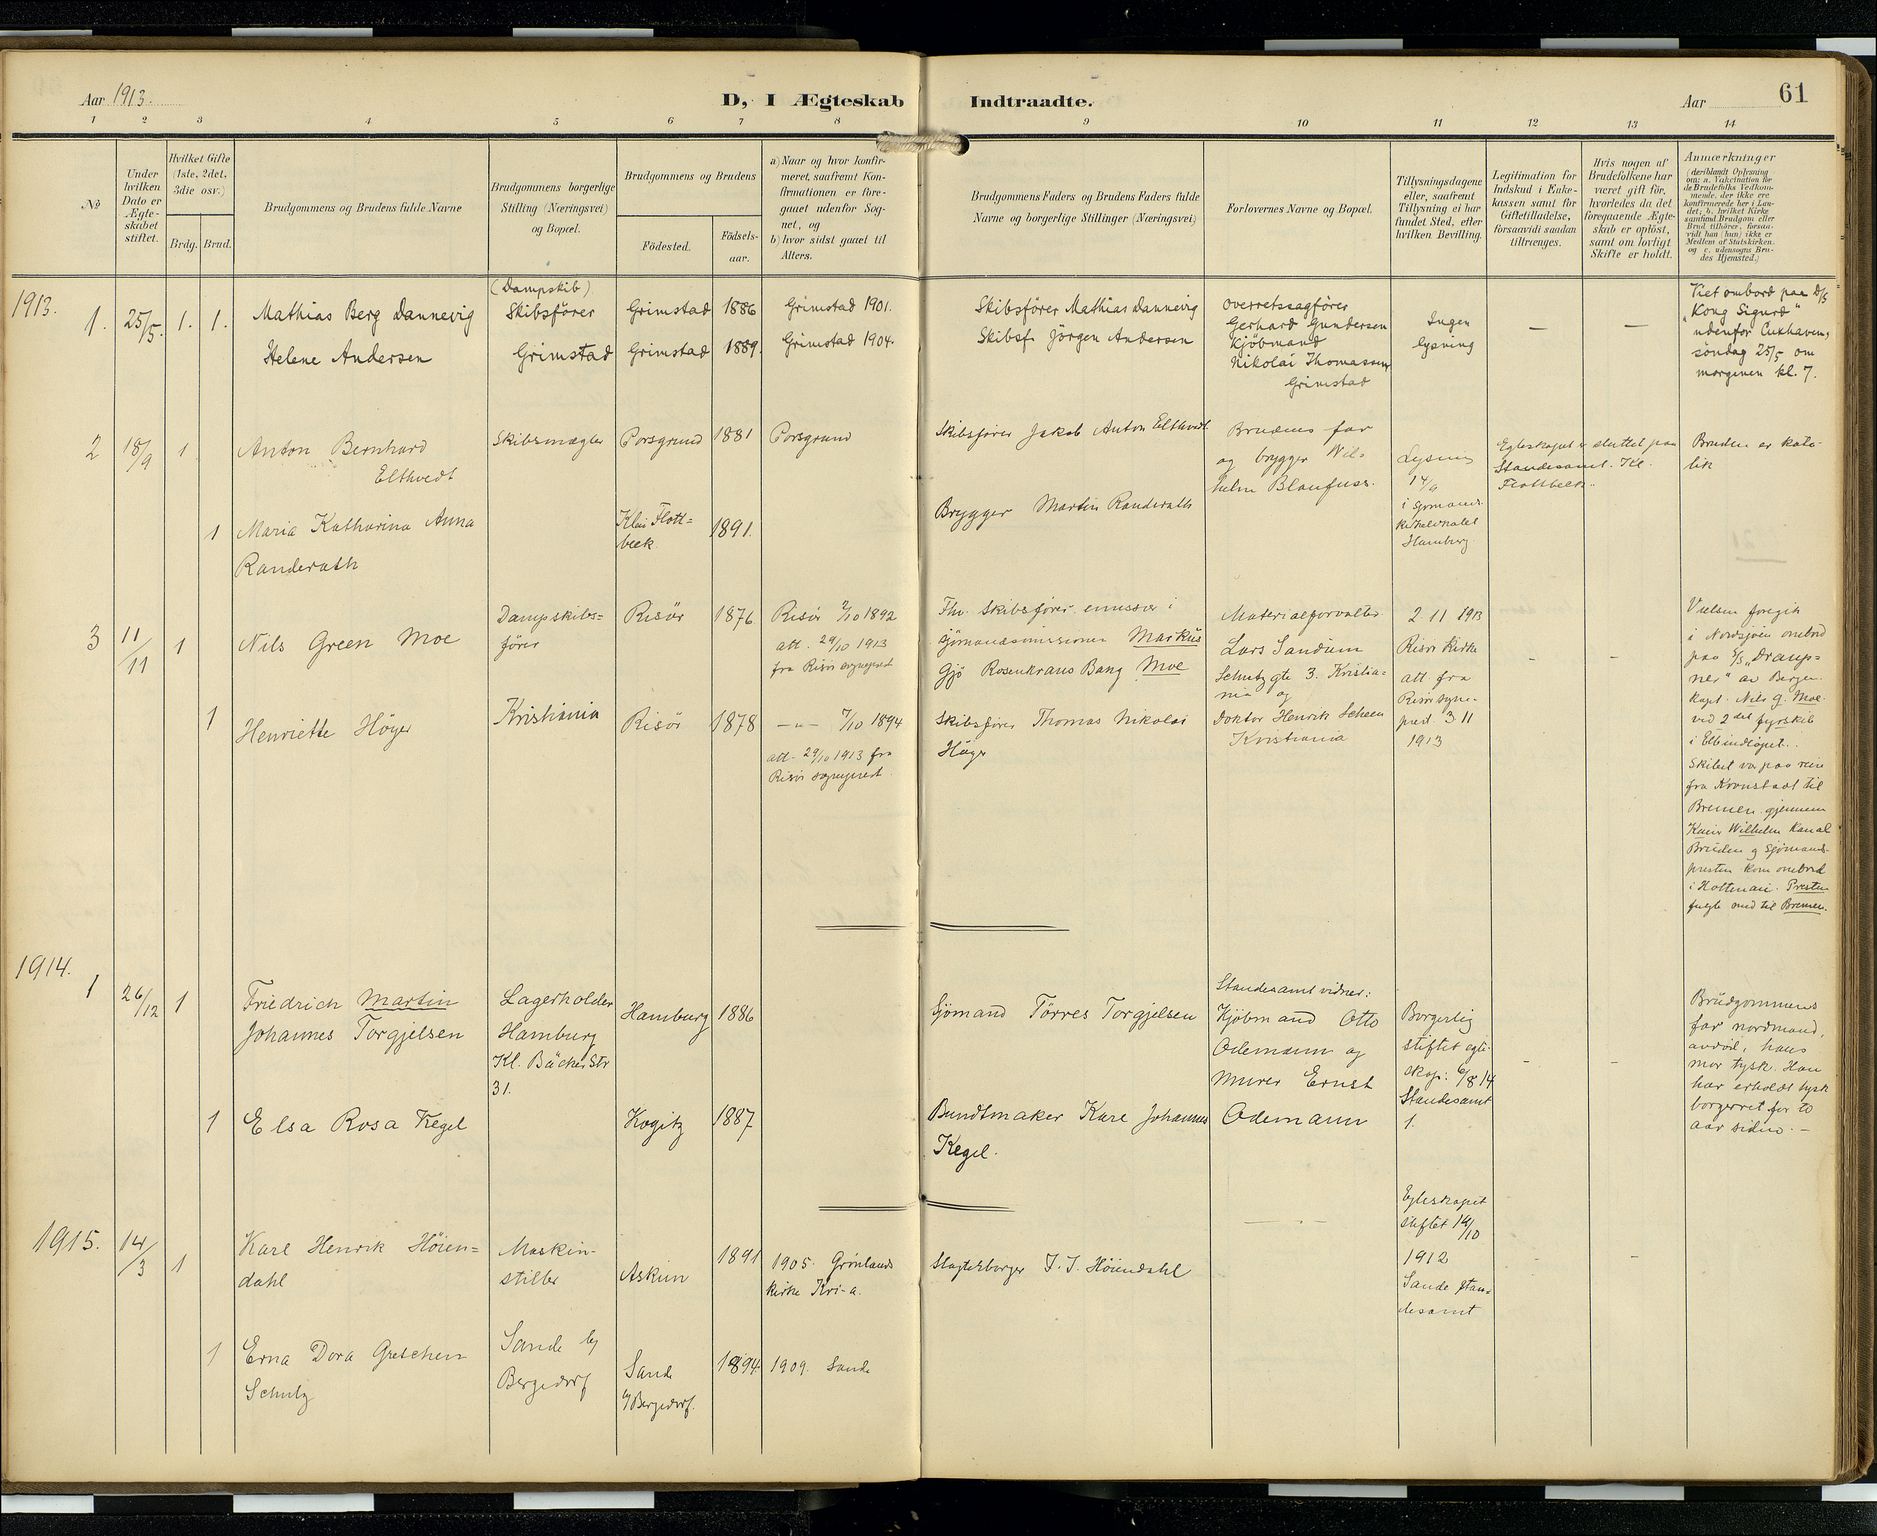 Aar 1913.
D, I Ægteskab Indtraadte.
Aar
61
1 2 3 4 5 6 7 8 9 10 11 12 13 14
No
Under hvilken Dato er Ægteskabet stiftet.
Hvilket Gifte (1ste, 2det, 3die osv.)
Brdg. Brud.
Brudgommens og Brudens fulde Navne
Brudgommens borgerlige Stilling (Næringsvei) og Bopæl.
Brudgommens og Brudens
Födested.
Födselsaar.
a) Naar og hvor konfirmeret, saafremt Konfirmationen er foregaaet udenfor Sognet, og
b) hvor sidst gaaet til Alters.
Brudgommens Faders og Brudens Faders fulde Navne og borgerlige Stillinger (Næringsvei)
Forlovernes Navne og Bopæl.
Tillysningsdagene eller, saafremt Tillysning ei har fundet Sted, efter hvilken Bevilling.
Legitimation for Indskud i Enkekassen samt for Giftetilladelse, forsaavidt saadan tiltrænges.
Hvis nogen af Brudefolkene har været gift för, hvorledes da det foregaaende Ægteskab er oplöst, samt om lovligt Skifte er holdt.
Anmærkninger
(deriblandt Oplysning om: a. Vakcination for de Brudefolks Vedkommende, der ikke ere konfirmerede her i Landet; b. hvilket Kirkesamfund Brudgom eller Brud tilhörer, forsaavidt han (hun) ikke er Medlem af Statskirken, og c. udensogns Brudes Hjemsted.)
1913.
1. 25/5. 1. 1.
Mathias Berg Dannevig
Helene Andersen
(Dampskib)
Skibsfører
Grimstad
Grimstad 1886
Grimstad 1889.
Grimstad 1901.
Grimstad 1904.
Skibsfører Mathias Dannevig
Skibsf. Jörgen Andersen
Overretssagfører
Gerhard Gundersen
Kjöbmand
Nikolai Thomassen
Grimstad
Ingen
lysning
— —
Viet ombord paa D/S
"Kong Sigurd"
udenfor Cuxhaven,
söndag 25/5 om
morgenen kl. 7.
2 18/9 1
Anton Bernhard
Elthvedt
Skibsmægler
Porsgrund 1881
Porsgrund
Skibsfører Jakob Anton Elthvedt
Brudens far
og brygger
Blaufuss.
Lysning
14/9
i sjømands
Hamburg
Egteskapet er sluttet paa
Standesamt. Kl.
Flottbeck.
Bruden er kato-
lik
1
Maria Katharina Anna
Randerath
Klein Flott=
beck. 1891.
Brygger Martin Randerath
3 11/11 1
Nils Green Moe
Dampskibs=
fører
Kristiania
Risør 1876
Risør 2/10 1892
att. 29/10 1913
fra Risør sogneprest
Fhv. Skibsfører, emissær i
sjømandsmissionen Markus
Gjø Rosenkrans Bang Moe
Materialforvalter
Lars Sandum
Schutzgte 3. Kristia-
nia og
Doktor Henrik Scheen
Kristiania
2 11 1913
Risør Kirke
att. fra
Risør sogne-
prest 3 11
1913
- -
Vielsen foregik
i Nordsjøen ombord
paa S/S "Draup=
ner" av Bergen
kapt. Nils G. Moe.
ved 2det fyrskib
i Elbindløpet.
Skibet var paa reise
fra Kronstadt til
Bremen gjennem
Kaiser Wilhelm Kanal
Bruden og sjømands-
presten kom ombord
i Holtenau. Presten
fulgte med til Bremen.
1
Henriette Höyer
Risør 1878
-"- 7/10 1894
att. 29/10 1913 fra
Risør sogneprest.
Skibsfører Thomas Nikolai
Höyer
1914.
1 26/12 1
Friedrich Martin
Johannes Torgjelsen
Lagerholder
Hamburg
Kl. Bäckerstr
31.
Hamburg 1886
Sjömand Törres Torgjelsen
Standesamt vidner:
Kjöbmand Otto
Odemann og
murer Ernst
Odemann
Borgerlig
stiftet egte-
skap: 6/8 14
Standesamt
1.
- -
Brudgommens
far nordmand,
avdöd, hans
mor tysk. Han
har erholdt tysk
borgerret for 20
aar siden. —
1
Elsa Rosa Kegel
Kogitz 1887
Bundtmaker Karl Johannes
Kegel.
1915. 14/3 1
Karl Henrik Höien=
dahl
Maskin-
stiller
Sande by
Bergedorf
Askim 1891
1905. Grönlands
kirke Kri-a.
Slagterborger J. J. Höiendahl
Egteskapet
stiftet 14/10
1912
Sande Stan=
desamt
1
Erna Dora Gretchen
Schulz
Sande
b/Bergedorf. 1894.
1909. Sande